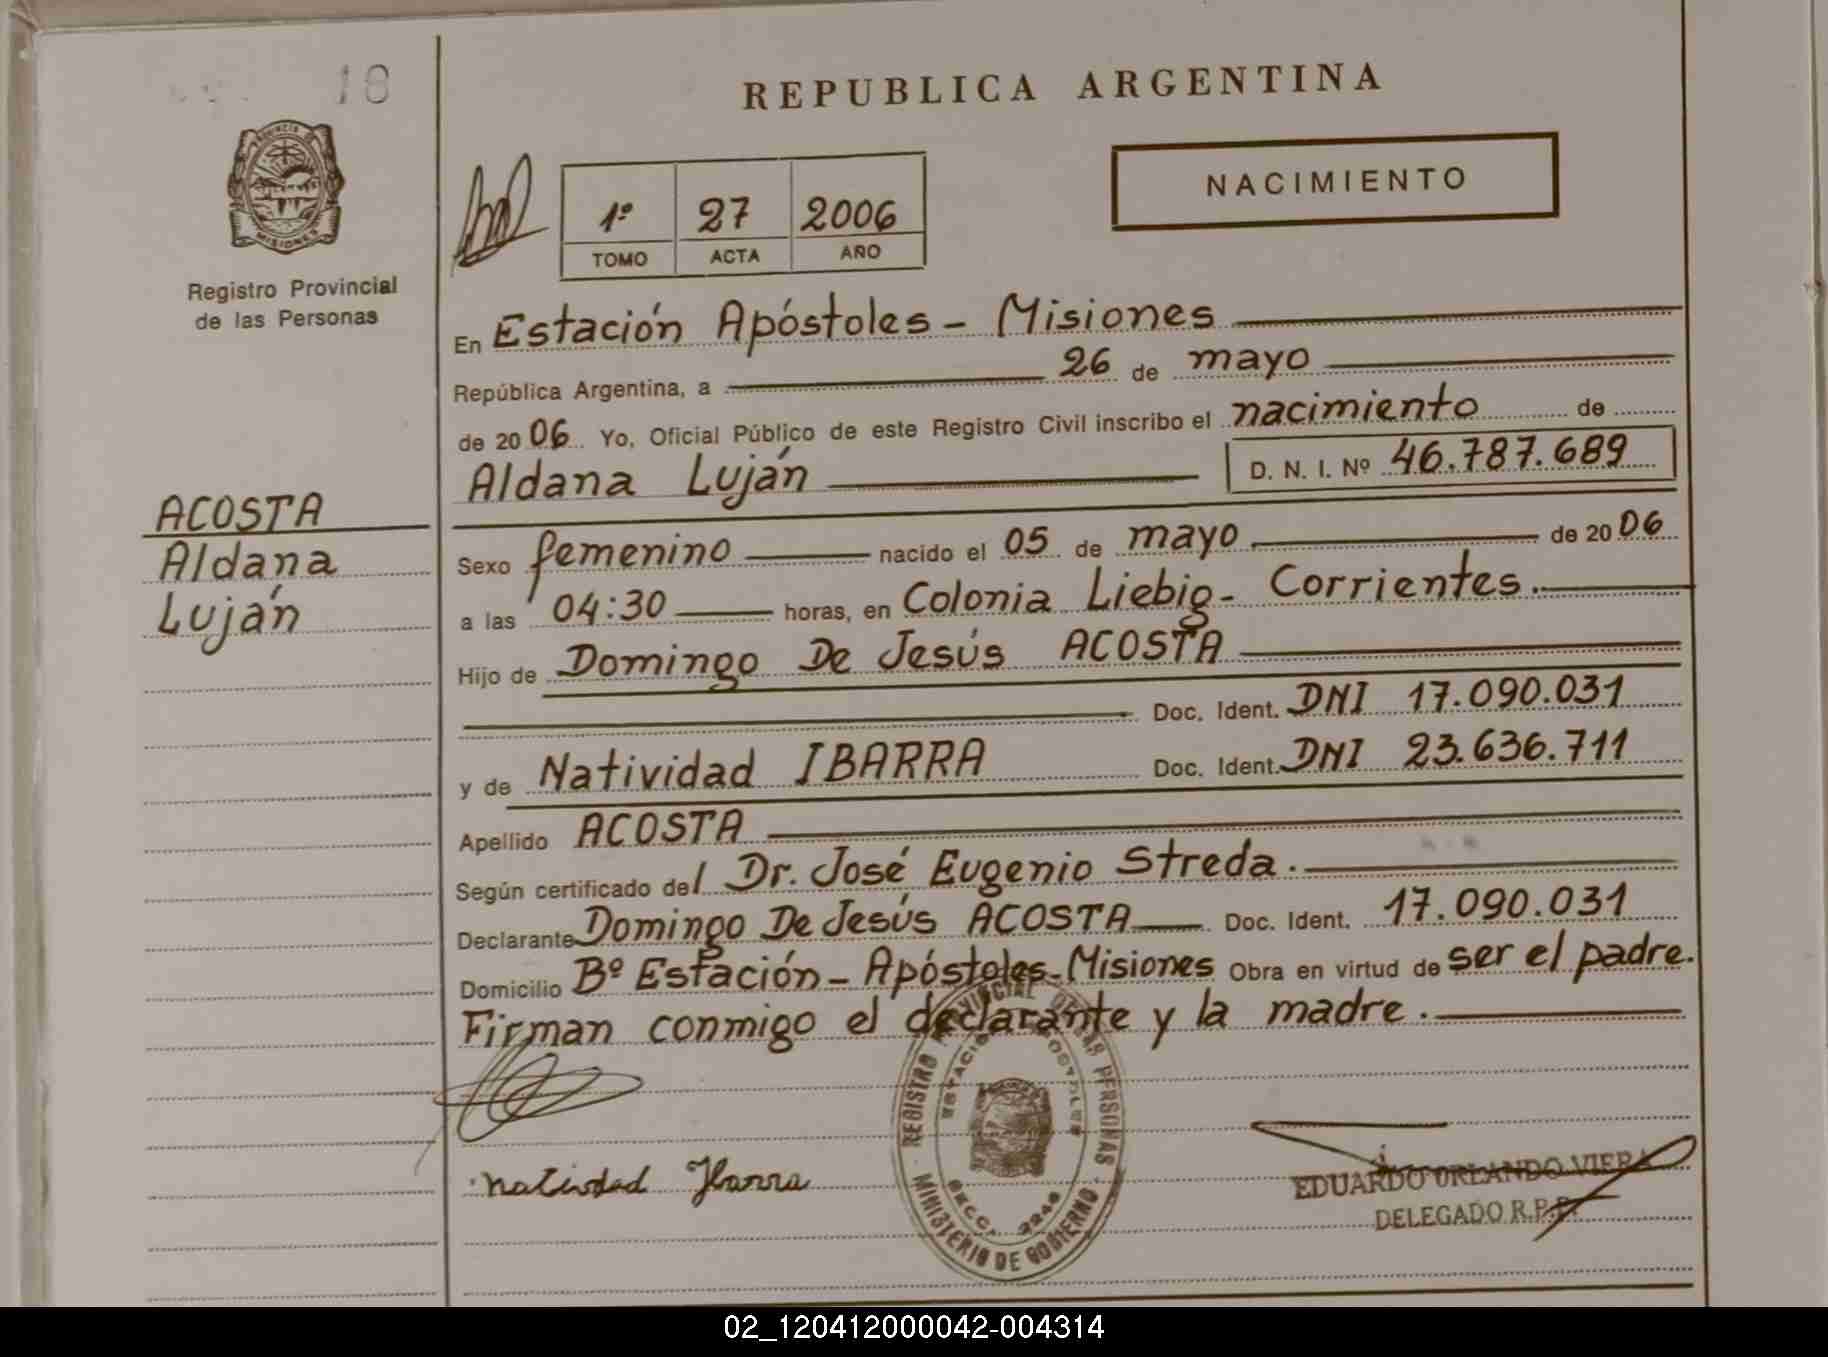 18
REPUBLICA ARGENTINA
PROVINCIA DE
MISIONES
Registro Provincial
de las Personas
1º 27 2006
TOMO ACTA AÑO
NACIMIENTO
En Estación Apóstoles - Misiones
República Argentina, a 26 de mayo
de 2006 Yo, Oficial Público de este Registro Civil inscribo el nacimiento de
Aldana Luján D. N. I. Nº 46.787.689
ACOSTA
Aldana
Luján
Sexo femenino nacido el 05 de mayo de 2006
a las 04:30 horas, en Colonia Liebig - Corrientes.
Hijo de Domingo De Jesús ACOSTA
Doc. Ident. DNI 17.090.031
y de Natividad IBARRA Doc. Ident. DNI 23.636.711
Apellido ACOSTA
Según certificado del Dr. José Eugenio Streda.
Declarante Domingo De Jesús ACOSTA Doc. Ident. 17.090.031
Domicilio Bº Estación - Apóstoles - Misiones Obra en virtud de ser el padre.
Firman conmigo el declarante y la madre.
REGISTRO PROVINCIAL DE LAS PERSONAS
ESTACION APOSTOLES
SECC. 2246
MINISTERIO DE GOBIERNO
natividad Ibarra
EDUARDO ORLANDO VIERA
DELEGADO R.P.P.
02_120412000042-004314